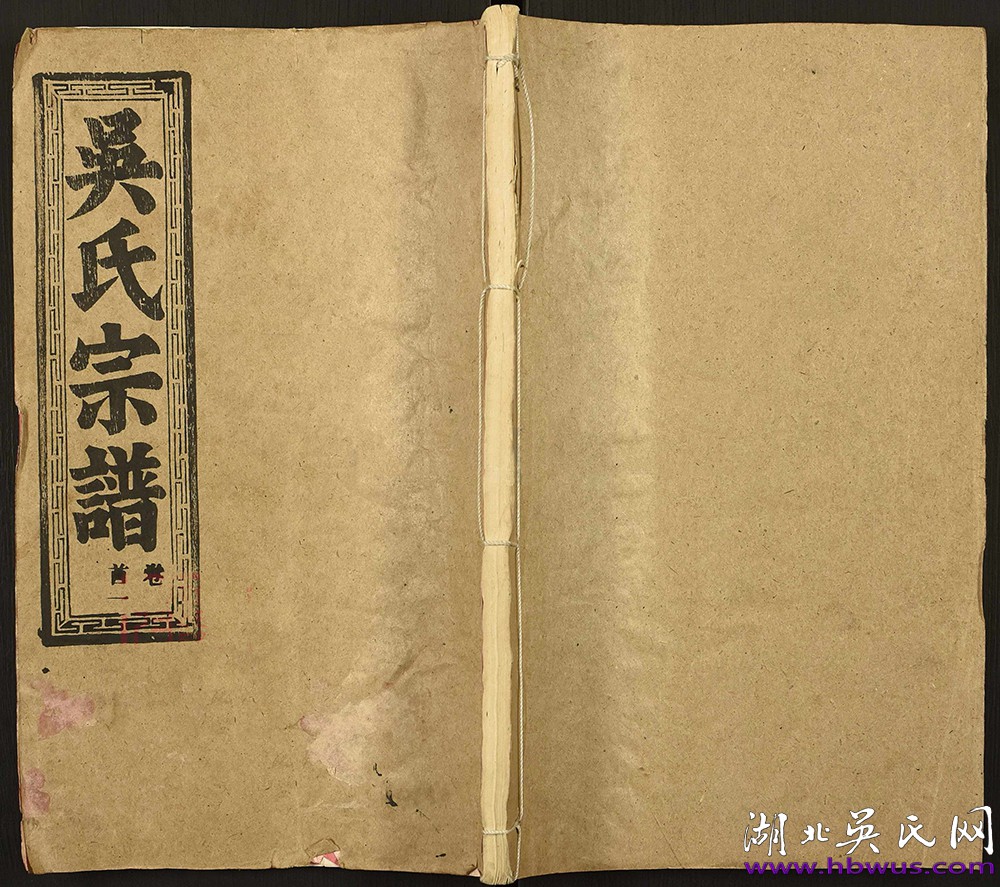 吳氏宗譜
卷
首一
湖北吳氏网
www.hbwus.com